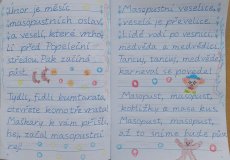 Únor je měsíc
masopustních oslav
a veselí, které vrcho
lí před Popeleční
středou. Pak začíná
půst.
Týdlí, tidli, bumtarata,
otevřete komoře vrata.
Maškary k vám přišli,
hej, začal masopustní
rej!
Masopustní veselice,
veselí je převelice.
Lidé vodí po vesnici
medvěda a medvědici.
Tancuj, tancuj, medvěde,
karneval se povede!
Masopust, masopust,
koblížky a masa kus.
Masopust, masopust,
až to sníme bude půst